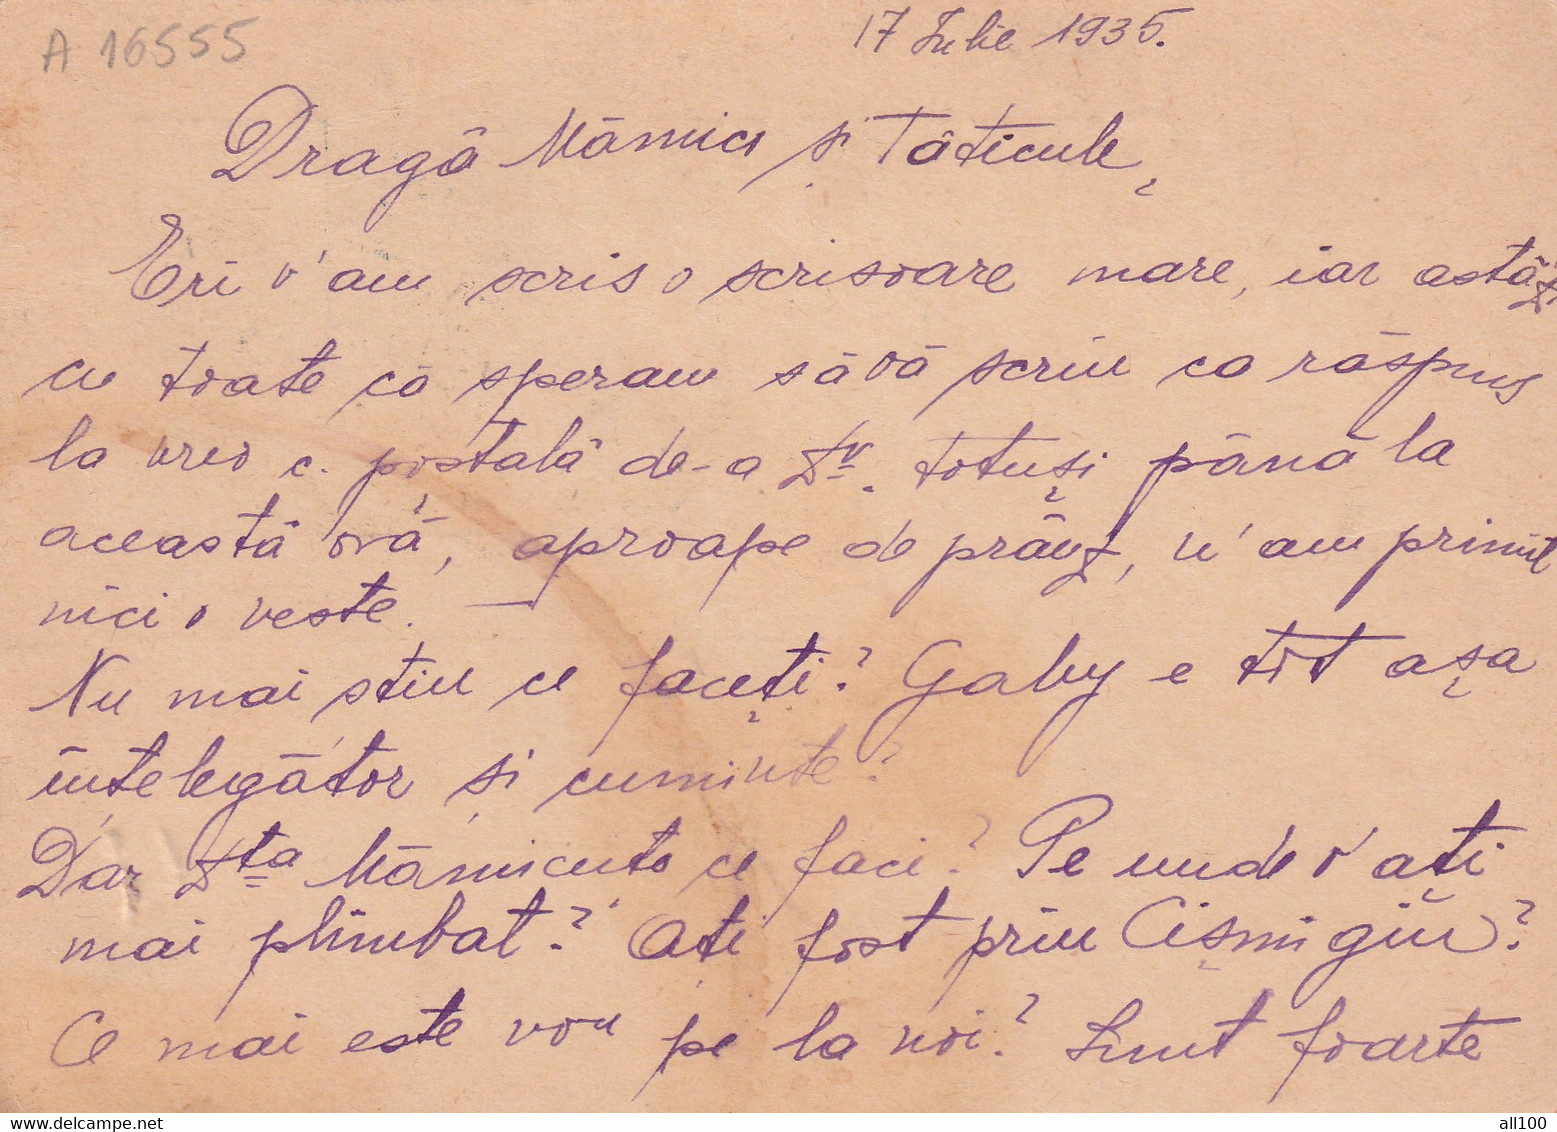 A 16555
17 Iulie 1935.
Dragă Mămico și Tăticule,
Eri v'am scris o scrisoare mare, iar astăzi
cu toate că speram să vă scriu ca răspuns
la vreo c. poștală de-a Dv. totuși până la
această oră, aproape de prânz, n'am primit
nici o veste. —
Nu mai știu ce faceți? Gaby e tot așa
întelegător și cuminte?
Dar Dta Mămicuto ce faci? Pe unde v'ați
mai plimbat? Ați fost prin Cișmigiu?
Ce mai este nou pe la noi? Sunt foarte
delcampe.net
all100